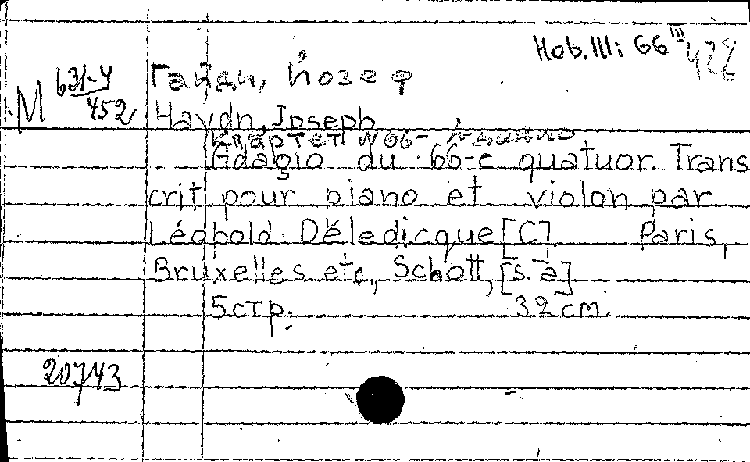 Hob. III: 66 III 422
M 631-4/452
Гайдн, Йозеф
Haydn, Joseph
Квартет №66-
Adagio du 66-e quatuor. Trans
crit pour piano et violon par
Léopold Déledicque [C] Paris,
Bruxelles etc., Schott, [s.a]
5 стр. 32 cm.
20743